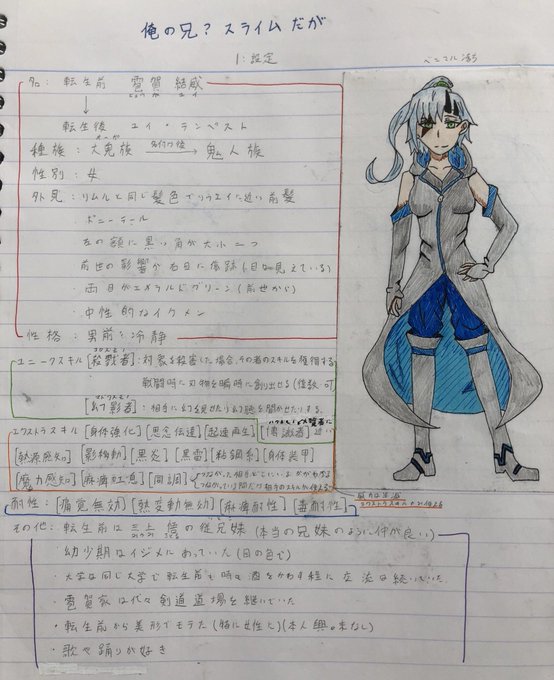 俺の兄？スライムだが
1: 設定
名: 転生前 雹賀 結威
↓
転生後 ユイ・テンペスト
種族: 大鬼族 → 鬼人族
オーガ
名付け後
性別: 女
外見: リムルと同じ髪色でソウエイに近い前髪
・ポニーテール
左の額に黒い角が大小二つ
前世の影響か右目に傷跡(目は見えている)
・両目がエメラルドグリーン(前世から)
・中性的なイケメン
性格: 男前 冷静
ユニークスキル[殺戮者]: 対象を殺害した場合、その者のスキルを獲得する
戦闘時に刃物を瞬時に創り出せる(複数可)
[幻影者]: 相手に幻視せたり幻聴を聞かせたりする
エクストラスキル[身体強化][思念伝達][超速再生][博識者]
[熱源感知][影移動][黒炎][黒雷][粘鋼糸][身体装甲]
[魔力感知][麻痺吐息][同調]
耐性: [痛覚無効][熱変動無効][麻痺耐性][毒耐性]
その他: 転生前は三上 悟の従兄妹(本当の兄妹のように仲が良い)
・幼少期はイジメにあっていた(目の色で)
・大学は同じ大学で転生前も時々酒をかわす程に交流は続いていた
・雹賀家は代々剣道道場を継いでいた
・転生前から美形でモテた(特に女性に)(本人興味なし)
・歌や踊りが好き